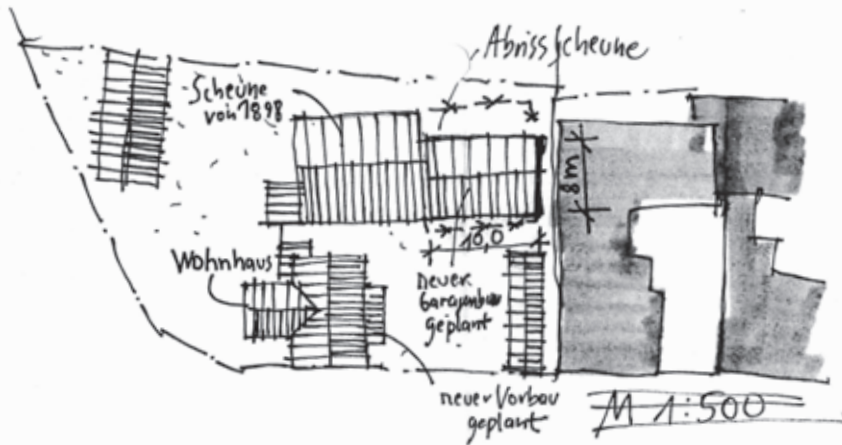 Abrissscheune
Scheune
von 1898
8m
10,0
Wohnhaus
neuer
Garagenbau
geplant
neuer Vorbau
geplant
M 1:500